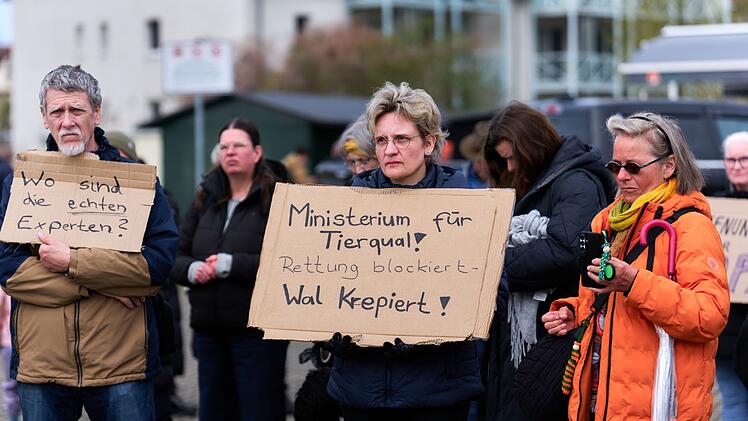 Wo sind
die echten
Experten?
Ministerium für
Tierqual!
Rettung blockiert-
Wal Krepiert!